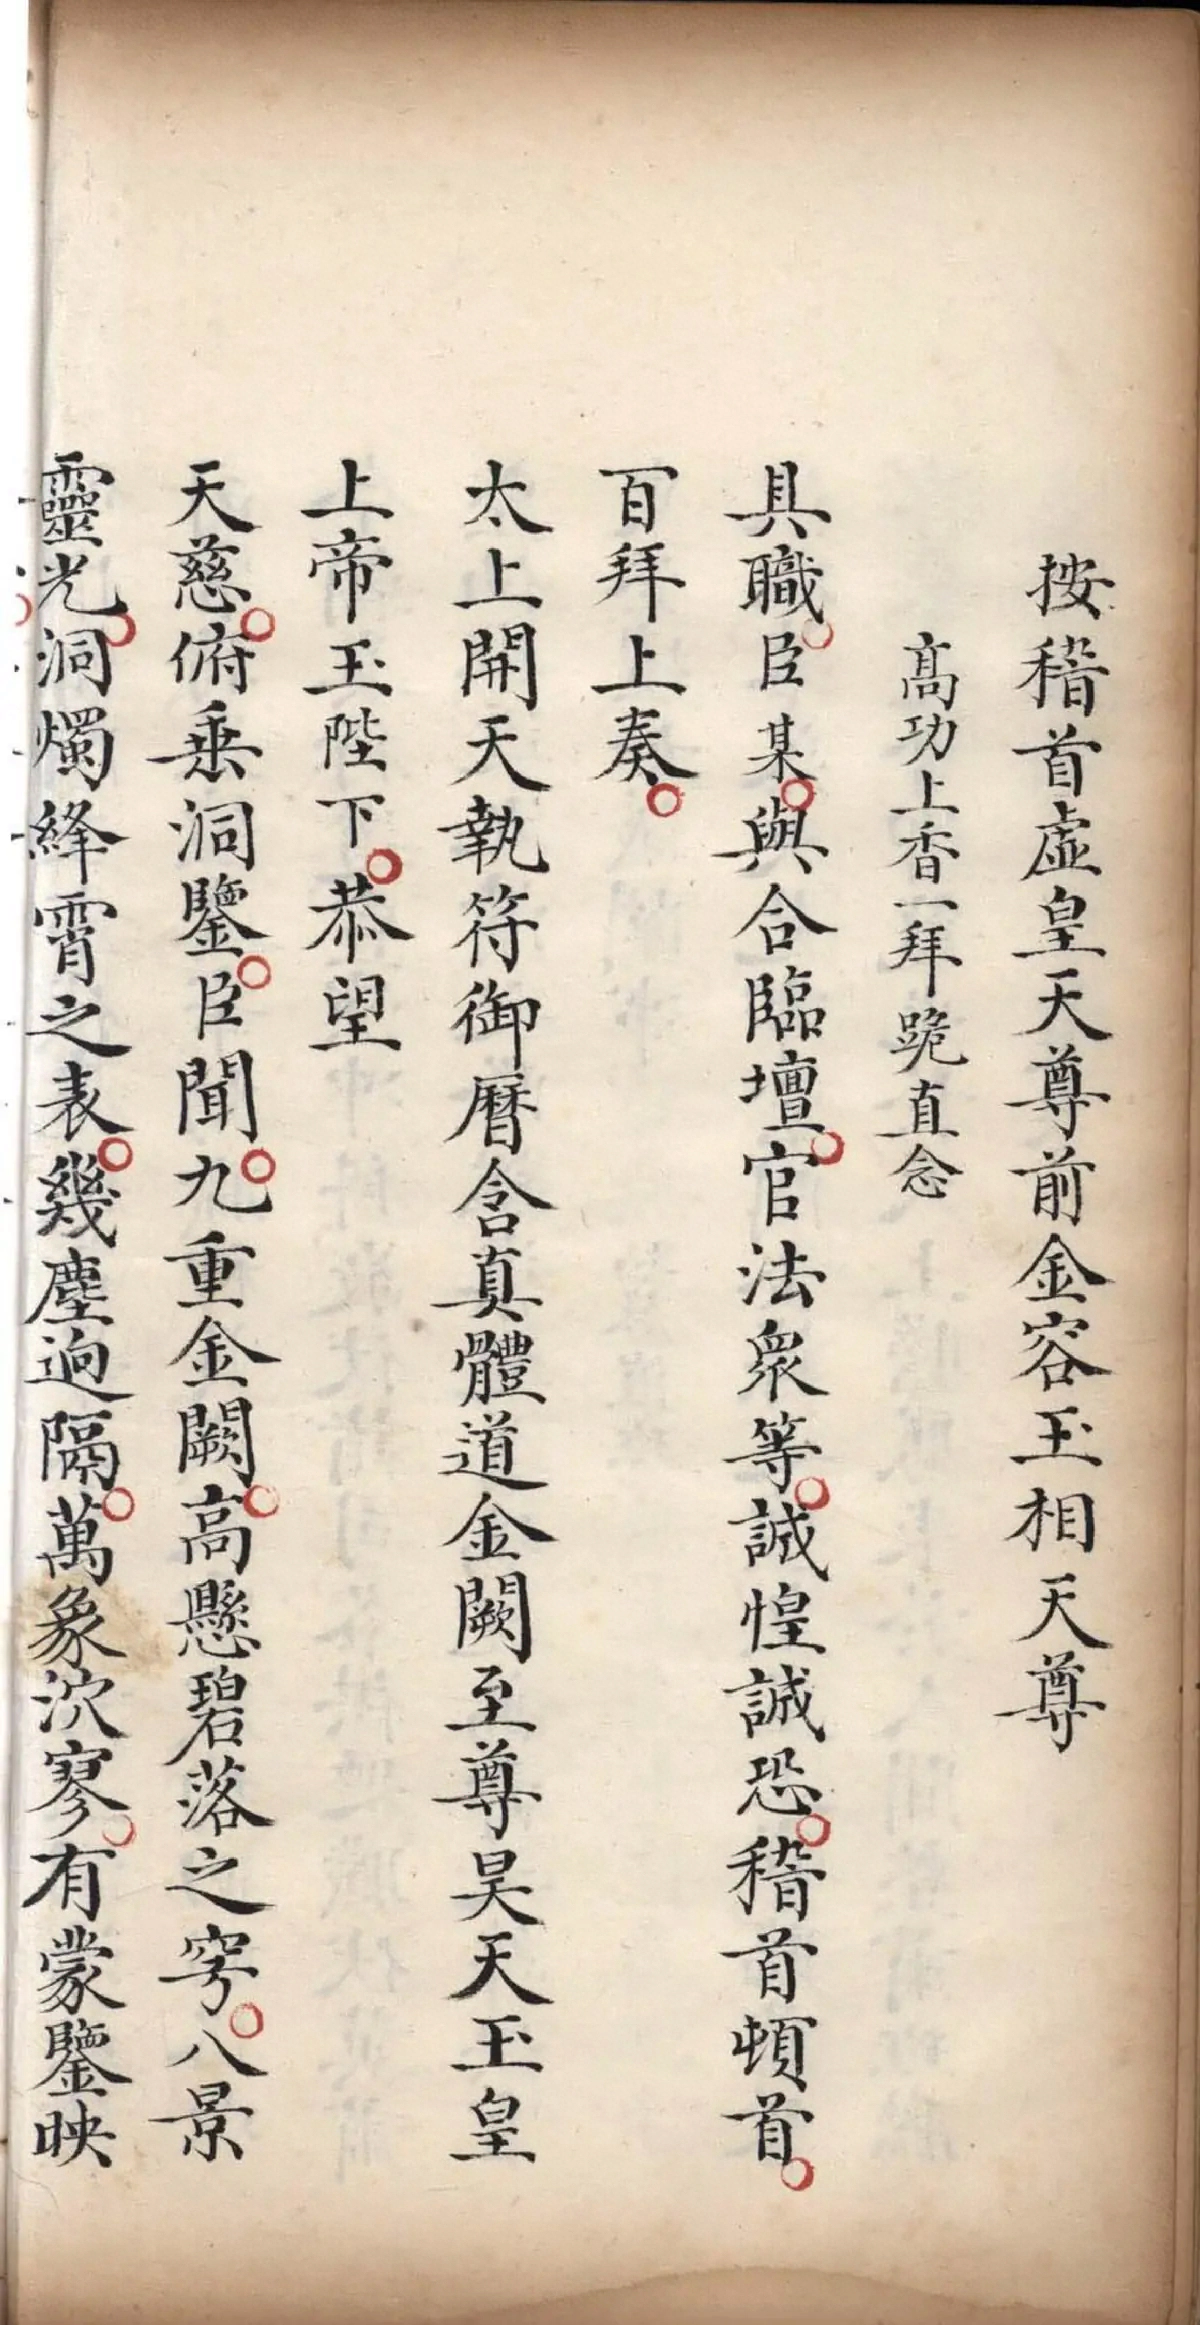 按稽首虛皇天尊前金容玉相天尊
髙功上香一拜跪直念
具職臣某與合臨壇官法衆等誠惶誠恐稽首頓首
百拜上奏
太上開天執符御曆含真體道金闕至尊昊天玉皇
上帝玉陛下恭望
天慈俯垂洞鑒臣聞九重金闕高懸碧落之穹八景
靈光洞燭絳霄之表幾塵逈隔萬象泬寥有蒙鑒映